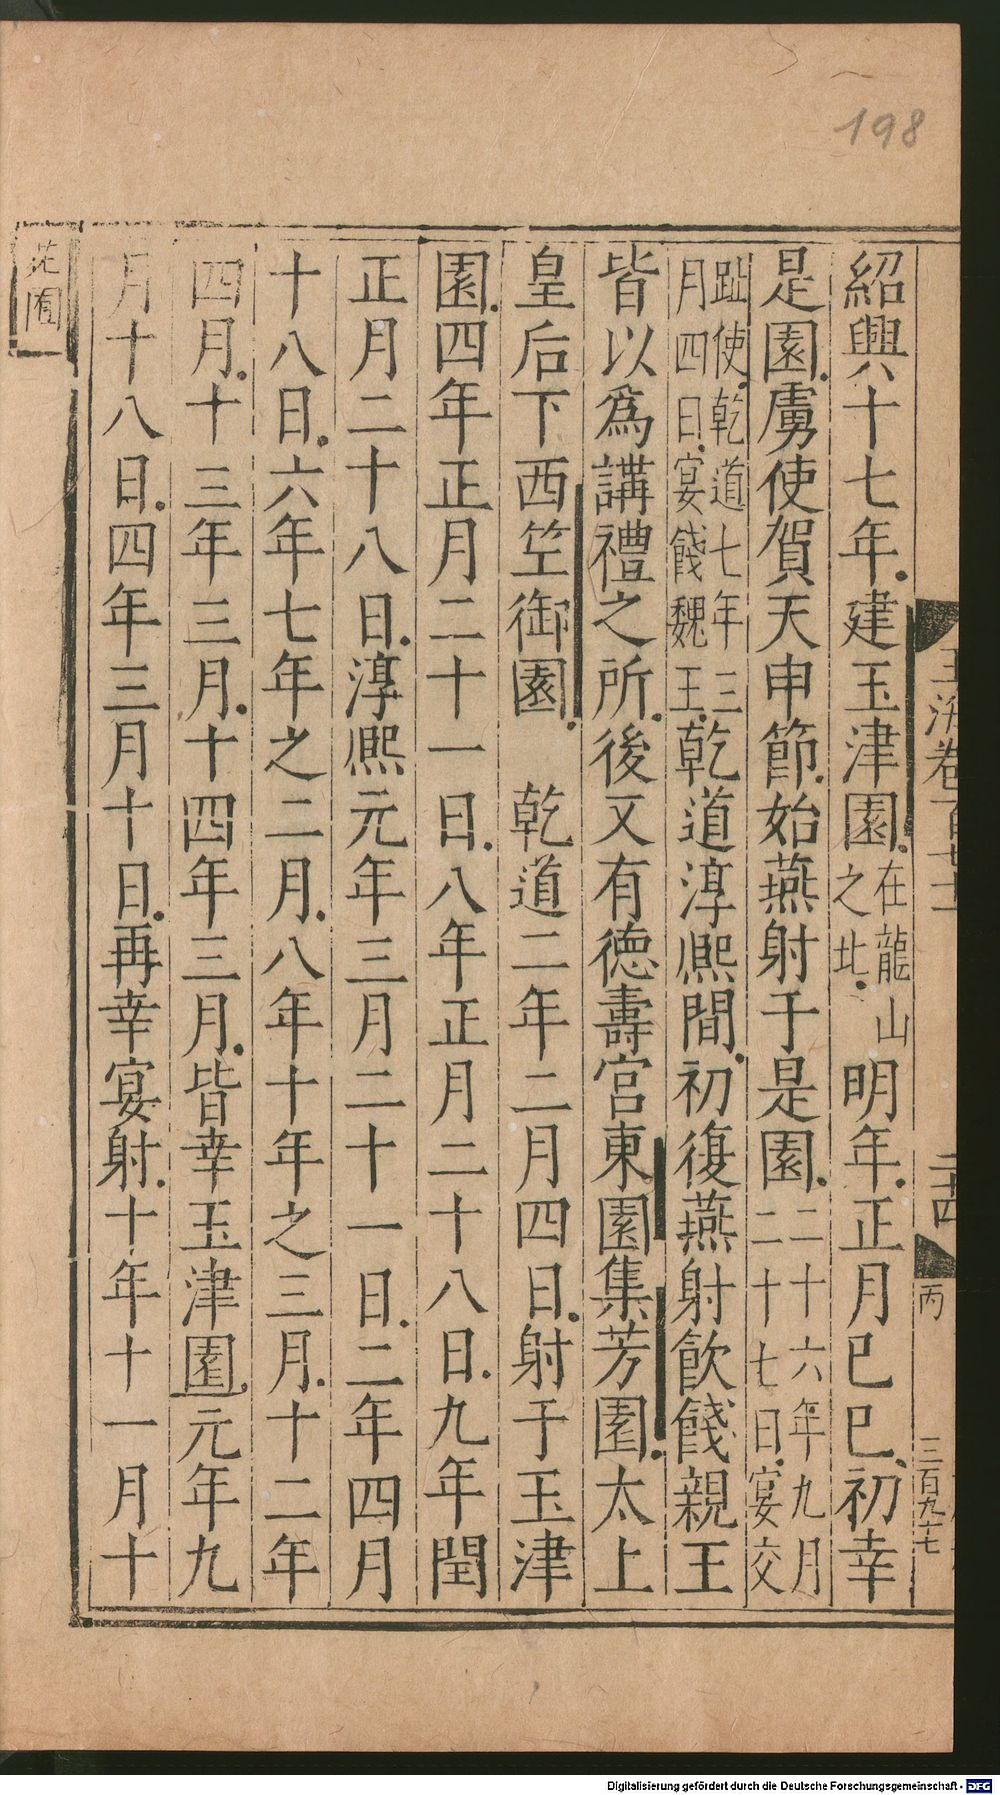 198
玉海卷百七十一
二十四
丙
三百九十七
紹興十七年建玉津園在龍山之北明年正月已巳初幸
是園虜使賀天申節始燕射于是園二十六年九月二十七日宴交
趾使乾道七年三月四日宴餞魏王乾道淳熈間初復燕射飲餞親王
皆以為講禮之所後又有德壽宮東園集芳園太上
皇后下西笠御園　乾道二年二月四日射于玉津
園四年正月二十一日八年正月二十八日九年閏
正月二十八日淳熈元年三月二十一日二年四月
十八日六年七年之二月八年十年之三月十二年
四月十三年三月十四年三月皆幸玉津園元年九
月十八日四年三月十日再幸宴射十年十一月十
苑囿
Digitalisierung gefördert durch die Deutsche Forschungsgemeinschaft - DFG